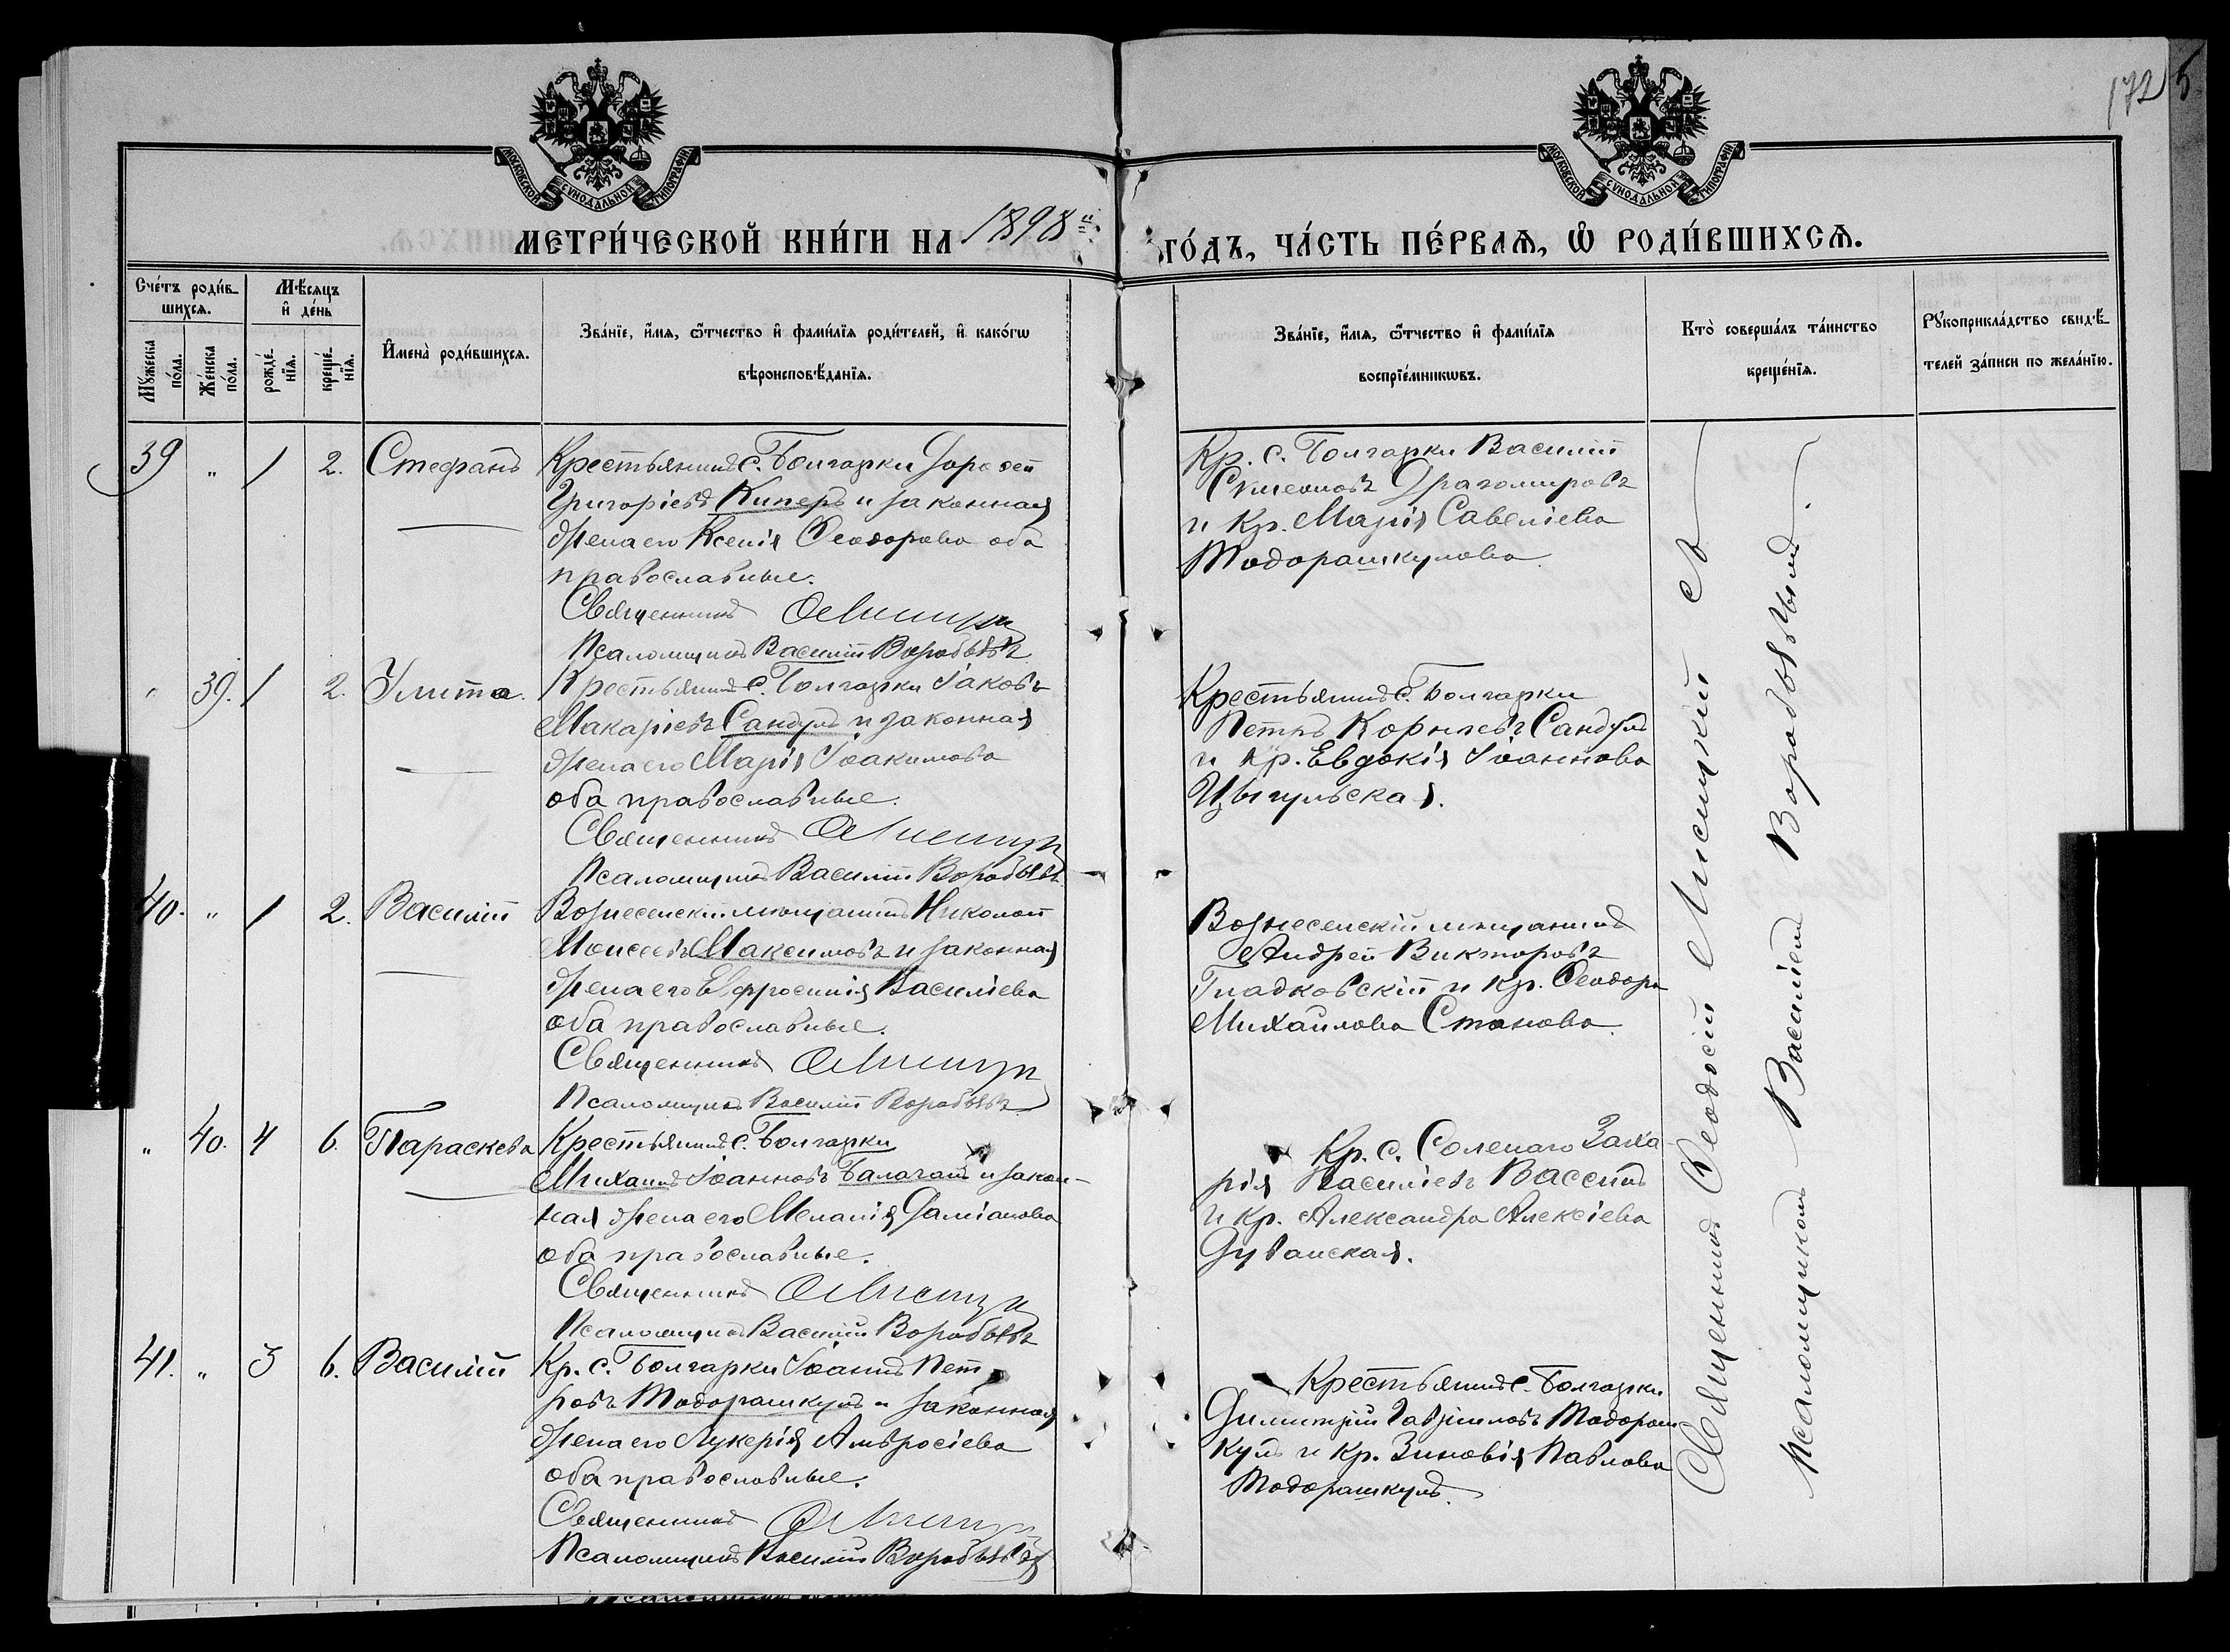 172
5
МОСКОВСКОЙ СѴНОДАЛЬНОЙ ТИПОГРАФІИ
МОСКОВСКОЙ СѴНОДАЛЬНОЙ ТИПОГРАФІИ
МЕТРИ́ЧЕСКОЙ КНИ́ГИ НА 1898 й ГО́ДЪ, ЧА́СТЬ ПЕ́РВАѦ, Ѡ҆ РОДИ́ВШИХСѦ.
Сче́тъ роди́в-
шихсѧ.
Мꙋжеска по́ла.
Же́нска по́ла.
Мѣ́сѧцъ
и҆ де́нь
рожде́-
нїѧ.
креще́-
нїѧ.
И҆мена̀ роди́вшихсѧ.
Зва́нїе, и҆́мѧ, ѻ҆́тчество и҆ фами́лїѧ роди́телей, и҆ како́гѡ
вѣроисповѣ́данїѧ.
Зва́нїе, и҆́мѧ, ѻ҆́тчество и҆ фами́лїѧ
воспрїе́мникѡвъ.
Кто̀ соверша́лъ та́инство
креще́нїѧ.
Рꙋкоприкла́дство свидѣ́-
телей за́писи по жела́нїю.
39 " 1 2. Стефанъ
Крестьянинъ с. Болгарки Дорофей
Григоріевъ Киперъ и законная
жена его Ксенія Ѳеодорова оба
православные.
Священникъ
Псаломщикъ Василій Воробьевъ
Кр. с. Болгарки Василій
Симеоновъ Драгомировъ
и Кр. Марія Савеліева
Тодорашкулова.
" 39. 1 2. Улита.
Крестьянинъ с. Болгарки Іаковъ
Макаріевъ Сандулъ и законная
жена его Марія Іоакимова
оба православные.
Священникъ
Псаломщикъ Василій Воробьевъ
Крестьянинъ с. Болгарки
Петръ Корніевъ Сандулъ
и Кр. Евдокія Іоаннова
Цыгульская.
40. " 1 2. Василій
Вознесенскій мѣщанинъ Николай
Моисеевъ Максимовъ и законная
жена его Евфросинія Василіева
оба православные.
Священникъ
Псаломщикъ Василій Воробьевъ
Вознесенскій мѣщанинъ
Андрей Викторовъ
Гладковскій и Кр. Ѳеодора
Михайлова Станова.
" 40. 4 6. Параскева
Крестьянинъ с. Болгарки
Михаилъ Іоанновъ Балаганъ и закон-
ная жена его Меланія Даміанова
оба православные.
Священникъ
Псаломщикъ Василій Воробьевъ
Кр. с. Соленаго Заха
рія Василіевъ
и Кр. Александра Алексіева
Дуванская.
41. " 3 6. Василій
Кр. с. Болгарки Іоаннъ Пет
ровъ Тодорашкулъ и законная
жена его Лукерія Амвросіева
оба православные.
Священникъ
Псаломщикъ Василій Воробьевъ
Крестьянинъ с. Болгарки
Димитрій Гавріиловъ Тодораш
кулъ и Кр. Зиновія Павлова
Тодорашкулъ.
Священникъ Ѳеодосій Лисицкій съ
псаломщикомъ Василіемъ Воробьевымъ.